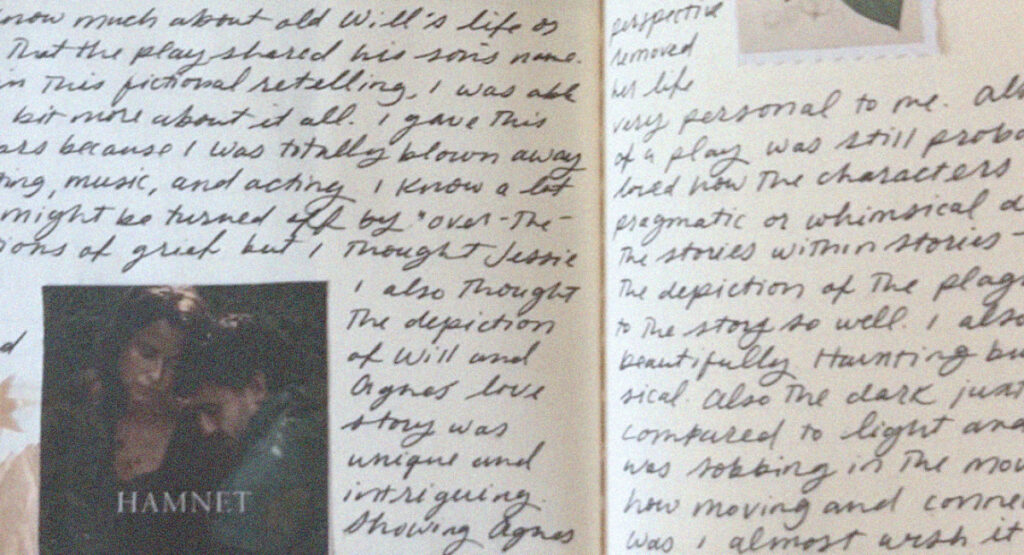 know much about old Will's life or
That the play shared his son's name.
in This fictional retelling, I was able
bit more about it all. I gave This
ars because I was totally blown away
ting, music, and acting I know a lot
might be turned off by "over-the-
ions of grief but I Thought Jessie
I also Thought
The depiction
of Will and
Agnes love
story was
unique and
intriguing.
Showing Agnes
d
HAMNET
perspective
removed
her life
very personal to me. Al
of a play was still proba
loved how The characters
pragmatic or whimsical d
The stories within stories -
The depiction of The plag
to The story so well. I also
beautifully Haunting bu
sical. Also The dark just
compared to light and
was sobbing in The mov
how moving and conne
was I almost wish it